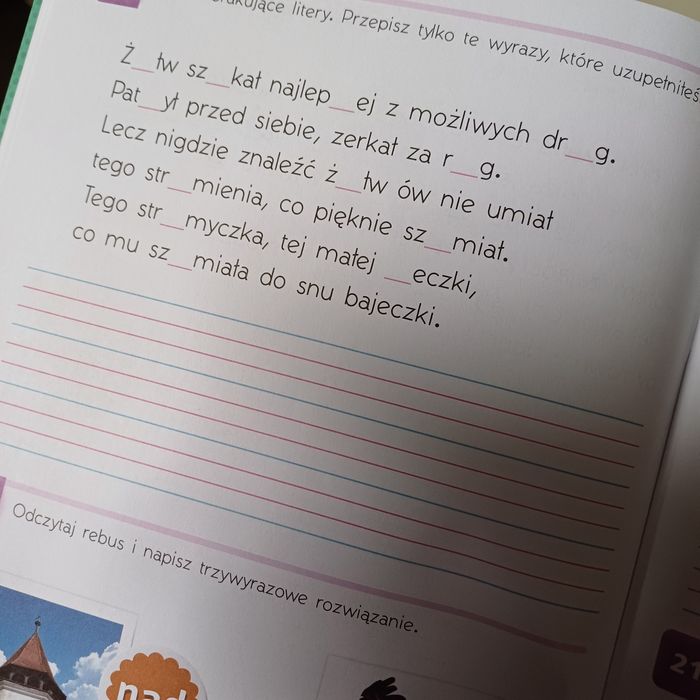 litery. Przepisz tylko te wyrazy, które uzupełniłeś
Ż_tw sz_kał najlep_ej z możliwych dr_g.
Pat_ył przed siebie, zerkał za r_g.
Lecz nigdzie znaleźć ż_tw ów nie umiał
tego str_mienia, co pięknie sz_miał.
Tego str_myczka, tej małej _eczki,
co mu sz_miała do snu bajeczki.
Odczytaj rebus i napisz trzywyrazowe rozwiązanie.
nad